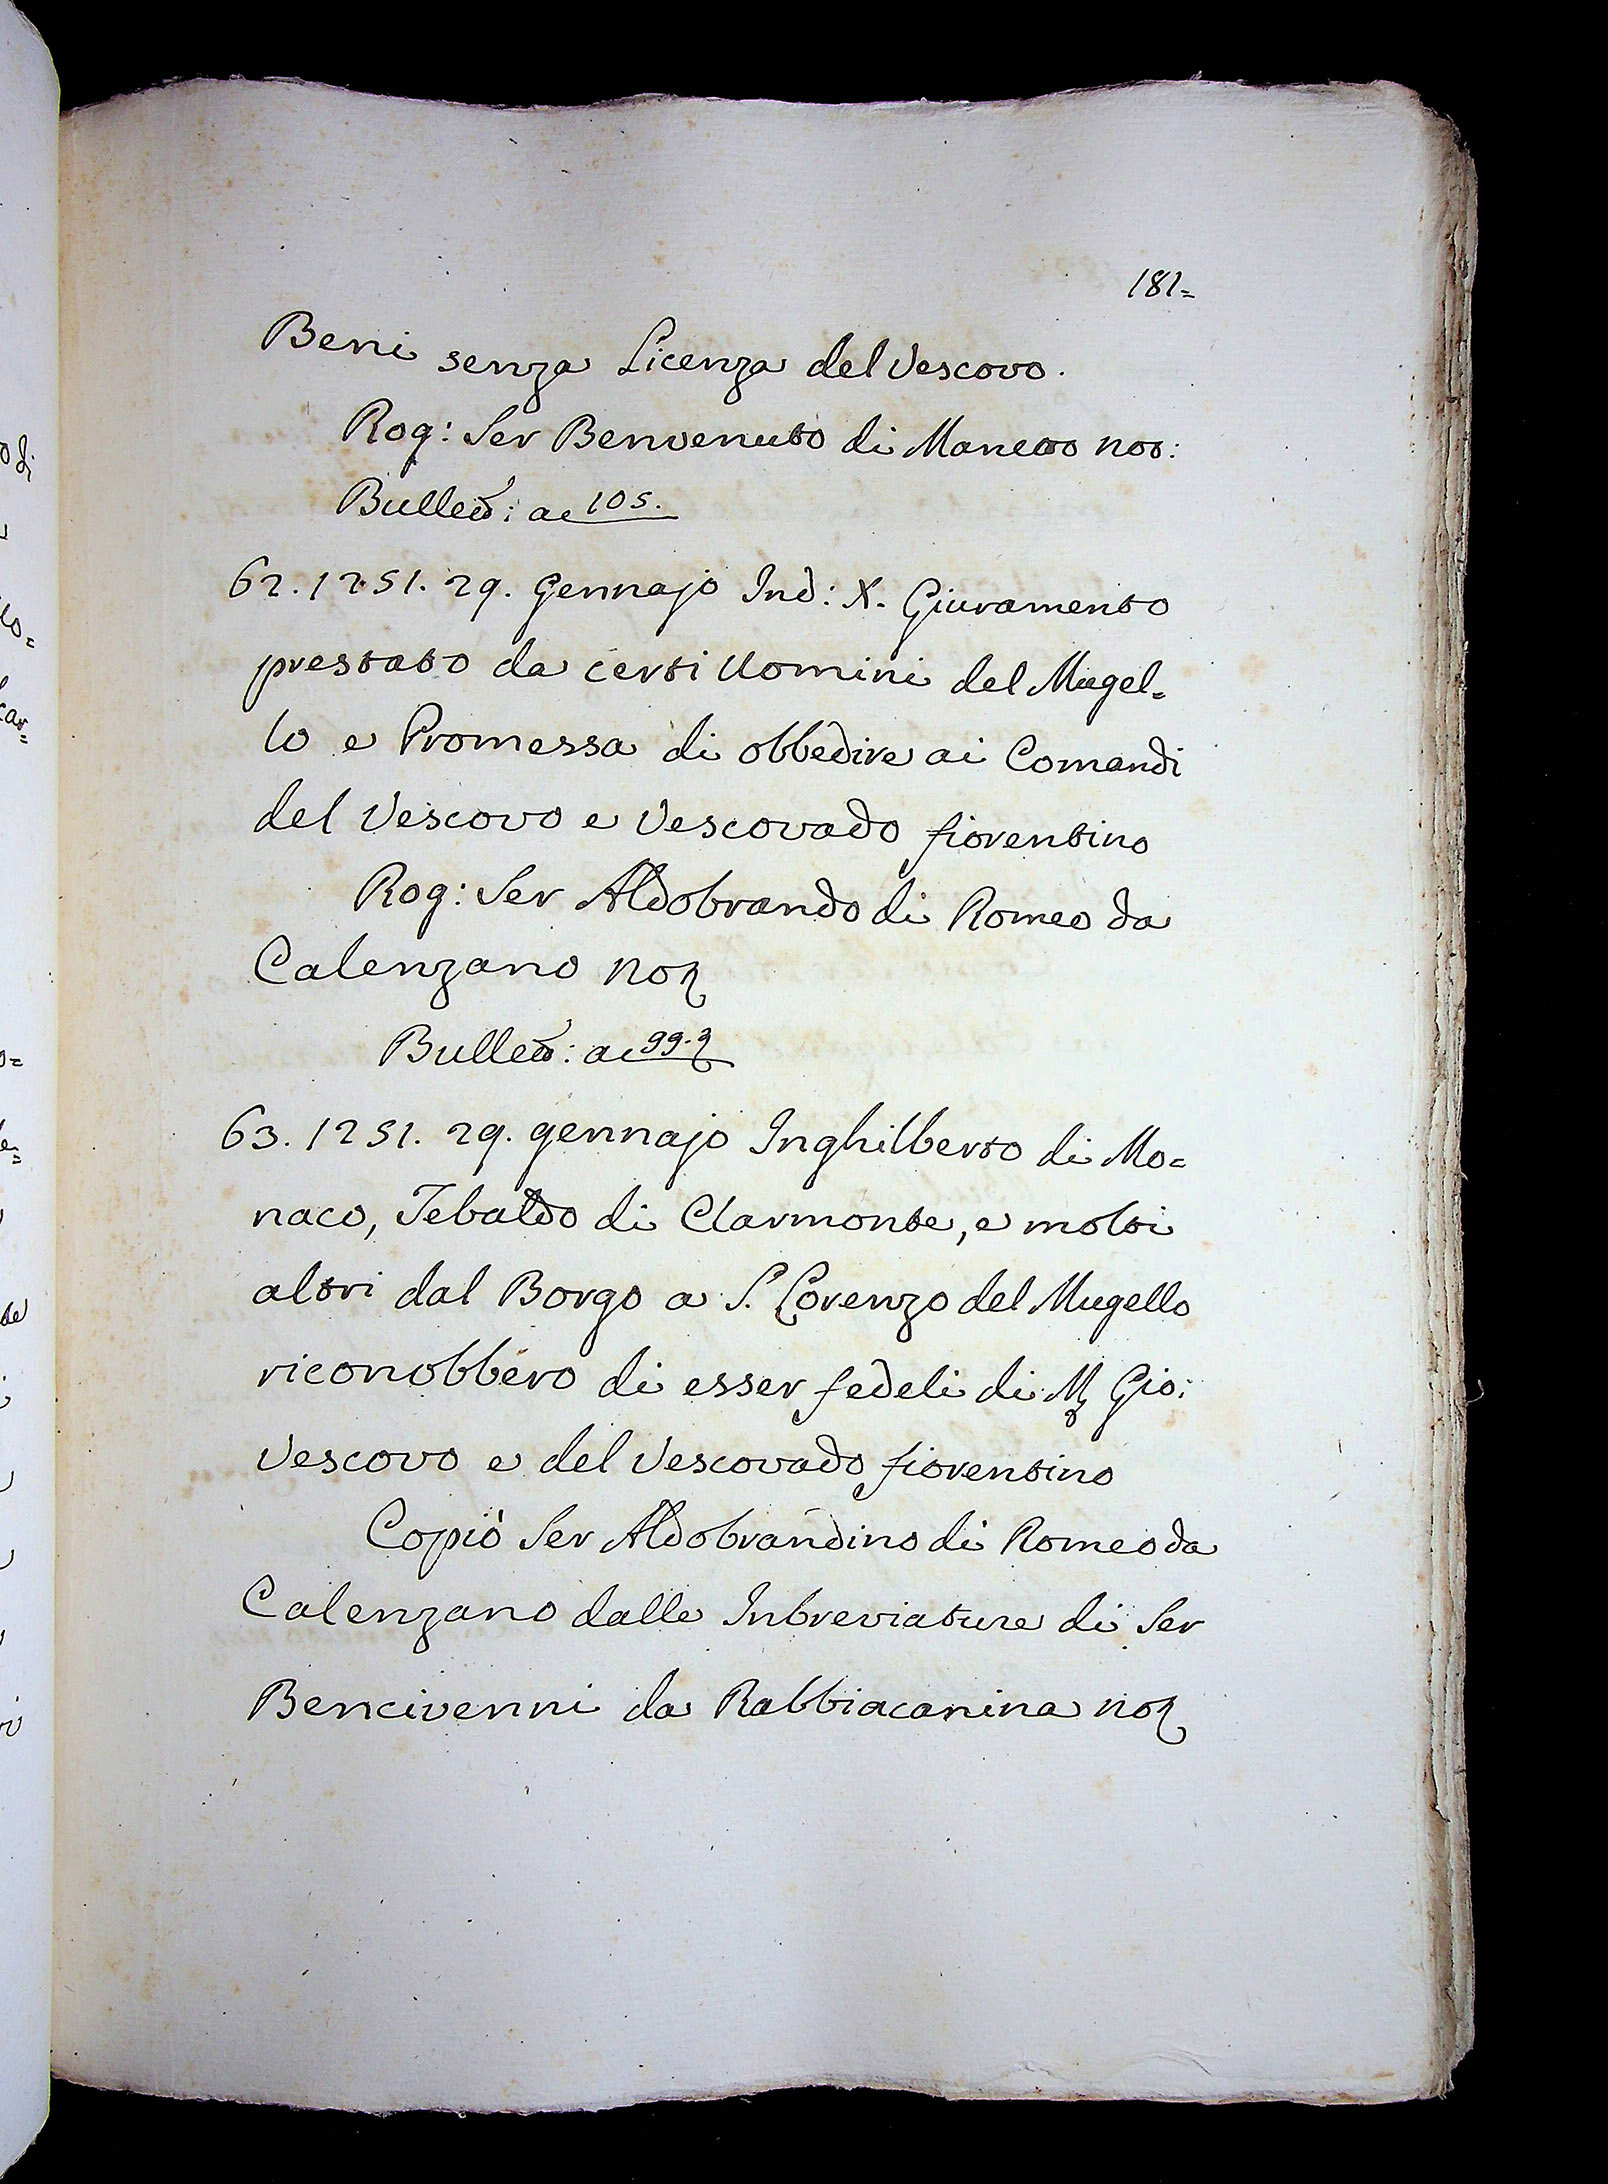 181=
Beni senza Licenza del Vescovo.
Rog: Ser Benvenuto di Manetto not:
Bullett: ac 105.
62. 1251. 29. Gennajo Ind: X. Giuramento
prestato da certi Uomini del Mugel=
lo e Promessa di obbedire ai Comandi
del Vescovo e Vescovado fiorentino
Rog: Ser Aldobrando di Romeo da
Calenzano not
Bullett: ac 99.
63. 1251. 29. gennajo Inghilberto di Mo=
naco, Tebaldo di Clarmonte, e molti
altri dal Borgo a S. Lorenzo del Mugello
riconobbero di esser fedeli di M Gio:
Vescovo e del Vescovado fiorentino
Copiò Ser Aldobrandino di Romeo da
Calenzano dalle Inbreviature di Ser
Bencivenni da Rabbiacanina not